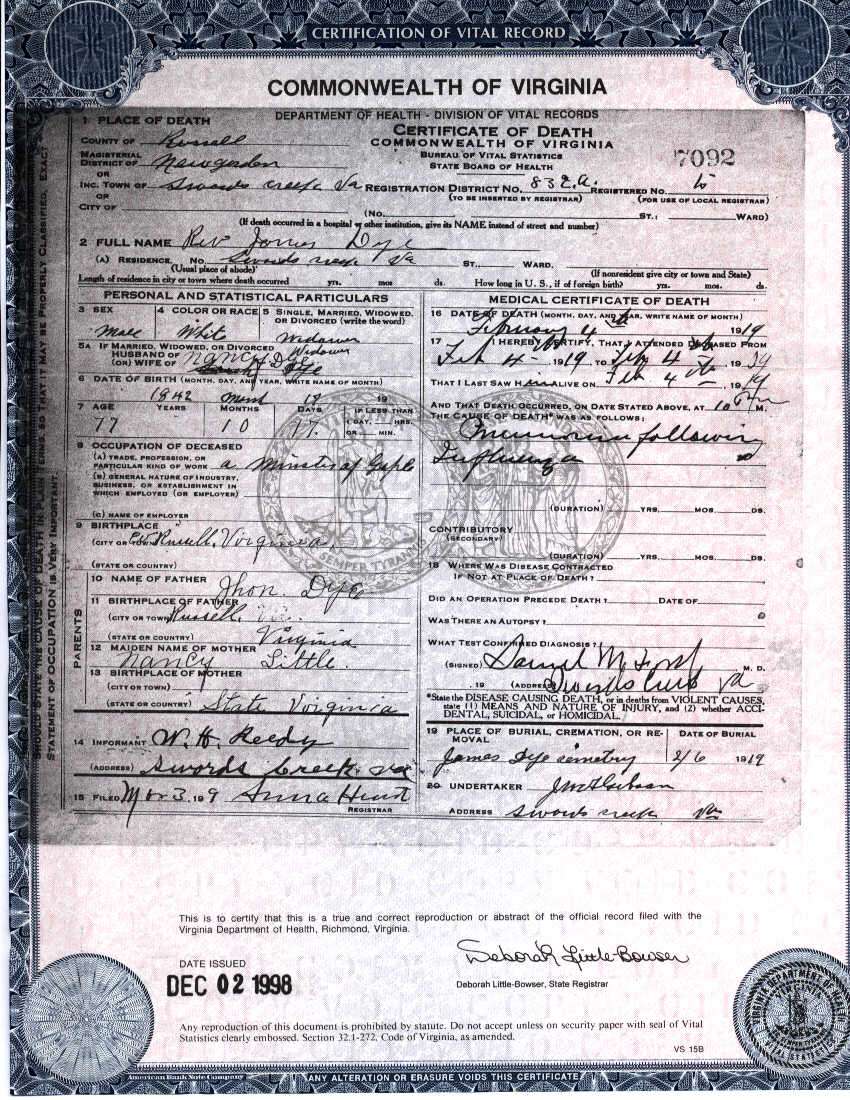 CERTIFICATION OF VITAL RECORD
COMMONWEALTH OF VIRGINIA
DEPARTMENT OF HEALTH - DIVISION OF VITAL RECORDS
1 PLACE OF DEATH
CERTIFICATE OF DEATH
COUNTY OF Russell
COMMONWEALTH OF VIRGINIA
MAGISTERIAL DISTRICT OF Newgarden
BUREAU OF VITAL STATISTICS
STATE BOARD OF HEALTH
7092
OR
INC. TOWN OF Swords creek Va REGISTRATION DISTRICT No. 832A. REGISTERED No.
(TO BE INSERTED BY REGISTRAR) (FOR USE OF LOCAL REGISTRAR)
OR
CITY OF (No. ST.; WARD)
(If death occurred in a hospital or other institution, give its NAME instead of street and number)
2 FULL NAME Rev James Dye
(A) RESIDENCE. No. Swords creek Va ST. WARD.
(Usual place of abode) (If nonresident give city or town and State)
Length of residence in city or town where death occurred yrs. mos ds. How long in U. S., if of foreign birth? yrs. mos. ds.
PERSONAL AND STATISTICAL PARTICULARS
3 SEX
4 COLOR OR RACE
5 SINGLE, MARRIED, WIDOWED, OR DIVORCED (write the word)
Male White Widower
5A IF MARRIED, WIDOWED, OR DIVORCED
Widower
HUSBAND OF Nancy Dye
(OR) WIFE OF
6 DATE OF BIRTH (MONTH, DAY, AND YEAR, WRITE NAME OF MONTH)
1842
7 AGE YEARS MONTHS DAYS IF LESS THAN
1 DAY, HRS.
OR MIN.
77 10 17
8 OCCUPATION OF DECEASED
(A) TRADE, PROFESSION, OR
PARTICULAR KIND OF WORK a
(B) GENERAL NATURE OF INDUSTRY,
BUSINESS, OR ESTABLISHMENT IN
WHICH EMPLOYED (OR EMPLOYER)
(C) NAME OF EMPLOYER
9 BIRTHPLACE
(CITY OR TOWN) Russell, Virginia
(STATE OR COUNTRY)
PARENTS
10 NAME OF FATHER Jhon. Dye
11 BIRTHPLACE OF FATHER
(CITY OR TOWN) Russell,
(STATE OR COUNTRY) Virginia
12 MAIDEN NAME OF MOTHER
Nancy Little.
13 BIRTHPLACE OF MOTHER
(CITY OR TOWN)
(STATE OR COUNTRY) State Virginia
14 INFORMANT W. H. Reedy
(ADDRESS) Swords Creek. va
15 FILED Mar 3, 19 9 Anna Hurt
REGISTRAR
MEDICAL CERTIFICATE OF DEATH
16 DATE OF DEATH (MONTH, DAY, AND YEAR, WRITE NAME OF MONTH)
February 4th 1919
17 I HEREBY CERTIFY, THAT I ATTENDED DECEASED FROM
Feb 4 - 1919 TO Feb 4 th, 1919
THAT I LAST SAW Him ALIVE ON Feb 4 th, 1919
AND THAT DEATH OCCURRED, ON DATE STATED ABOVE, AT 10 M.
THE CAUSE OF DEATH* WAS AS FOLLOWS:
following
Influenza
(DURATION) YRS. MOS. DS.
CONTRIBUTORY
(SECONDARY)
(DURATION) YRS. MOS. DS.
18 WHERE WAS DISEASE CONTRACTED
IF NOT AT PLACE OF DEATH?
DID AN OPERATION PRECEDE DEATH? DATE OF
WAS THERE AN AUTOPSY?
WHAT TEST CONFIRMED DIAGNOSIS?
(SIGNED) M. D.
, 19 (ADDRESS) Swords Creek Va
*State the DISEASE CAUSING DEATH, or in deaths from VIOLENT CAUSES,
state (1) MEANS AND NATURE OF INJURY, and (2) whether ACCI-
DENTAL, SUICIDAL, or HOMICIDAL.
19 PLACE OF BURIAL, CREMATION, OR RE-
MOVAL
DATE OF BURIAL
James Dye cemetry 2/6 1919
20 UNDERTAKER
ADDRESS Swords creek Va
SEMPER TYRANNIS
STATEMENT OF OCCUPATION IS VERY IMPORTANT.
This is to certify that this is a true and correct reproduction or abstract of the official record filed with the
Virginia Department of Health, Richmond, Virginia.
DATE ISSUED
DEC 02 1998
Deborah Little-Bowser
Deborah Little-Bowser, State Registrar
Any reproduction of this document is prohibited by statute. Do not accept unless on security paper with seal of Vital
Statistics clearly embossed. Section 32.1-272, Code of Virginia, as amended.
VS 15B
VIRGINIA DEPARTMENT OF HEALTH
VITAL STATISTICS
American Bank Note Company
ANY ALTERATION OR ERASURE VOIDS THIS CERTIFICATE